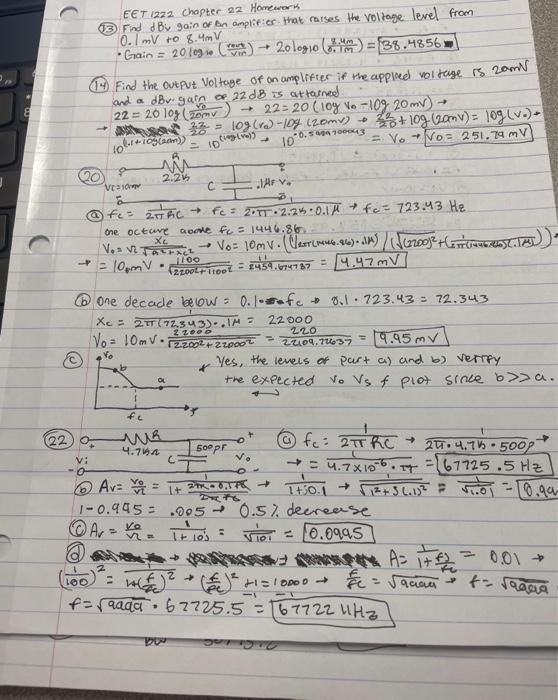 EET 1222 Chapter 22 Homework
(13) Find dBv gain of an amplifier that raises the voltage level from
0.1 mV to 8.4mV
• Gain = 20 log10 (Vout/Vin) → 20log10 (8.4m/0.1m) = 38.4856
(14) Find the output voltage of an amplifier if the applied voltage is 20mV
and a dBv gain of 22 dB is attained
22 = 20 log (Vo/20mv) → 22 = 20 (log Vo - log 20mv) →
→ 22/20 = log(vo) - log (20mv) → 22/20 + log (20mv) = log(vo) →
10^(1.1 + log(20m)) = 10^(log(vo)) → = Vo → Vo = 251.79 mV
(20) R
2.2k
Vi=10mv C .1μF Vo
(a) fc = 1/2πRC → fc = 1/2·π·2.2k·0.1μ → fc = 723.43 Hz
one octave above fc = 1446.86
Vo = Vi Xc/√R²+Xc² → Vo = 10mv · (1/2π(1446.86)·.1μ)/(√(2200)²+(1/2π(1446.86)(.1μ))²) →
→ = 10mV · 1100/√2200²+1100² = 11/2459.674787 = 4.47mV
(b) One decade below = 0.1·fc → 0.1 · 723.43 = 72.343
Xc = 1/2π(72.343)·.1μ = 22000
Vo = 10mV · 22000/√2200²+22000² = 220/22109.72637 = 9.95mV
(c) Vo Yes, the levels of part a) and b) verify
b a the expected Vo Vs f plot since b>>a.
fc f
(22) R
4.7kΩ 500pF
Vi C Vo
(a) fc: 1/2πRC → 1/2π·4.7k·500p →
→ = 1/4.7x10^-6 · π = 67725.5 Hz
1 - 0.995 = .005 → 0.5% decrease
(c) Av = Vo/Vi = 1/1+10j = 1/√101 = 0.0995
(d) A = 1/1+fj/fc = 0.01 →
(1/100)² = 1/1+(f/fc)² → (f/fc)² + 1 = 10000 → f/fc = √9999 → f = √9999
f = √9999 · 67725.5 =